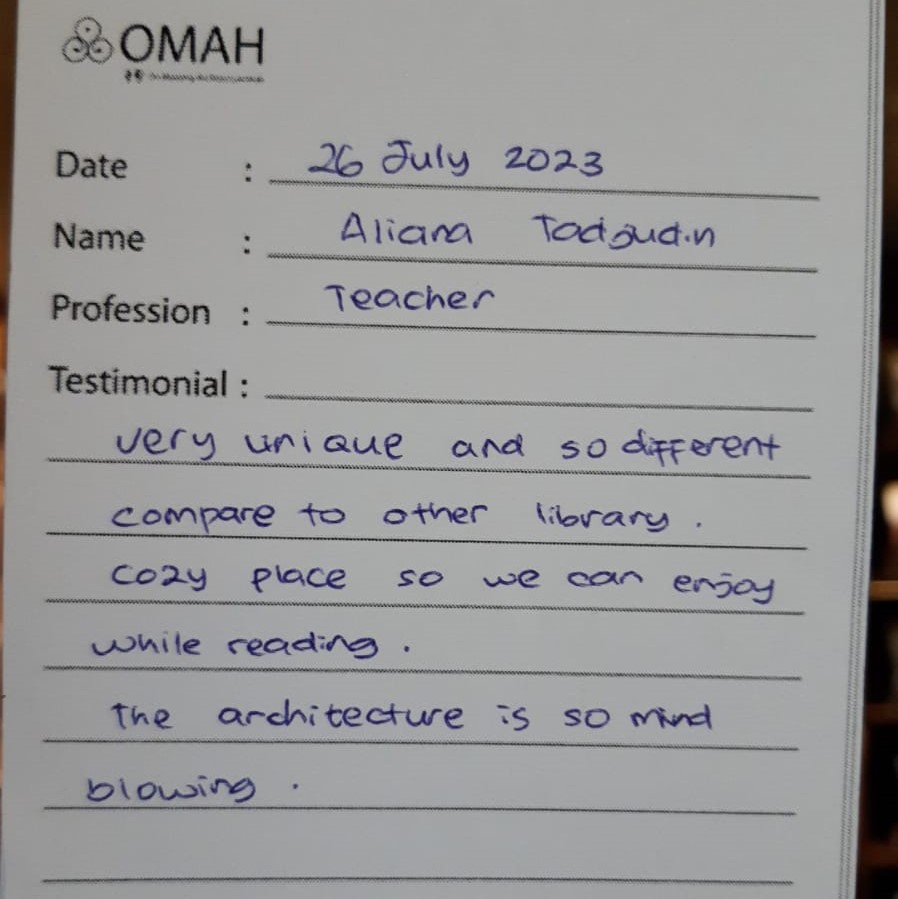 OMAH
Date : 26 July 2023
Name : Aliana
Profession : Teacher
Testimonial :
very unique and so different
compare to other library.
cozy place so we can enjoy
while reading.
the architecture is so mind
blowing.